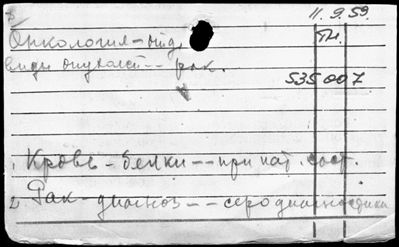 11.9.59.
Онкология – отд.
виды опухолей – – рак.
535007
1. Кровь – белки – – при пат. сост.
2. Рак – диагноз – – серодиагностика